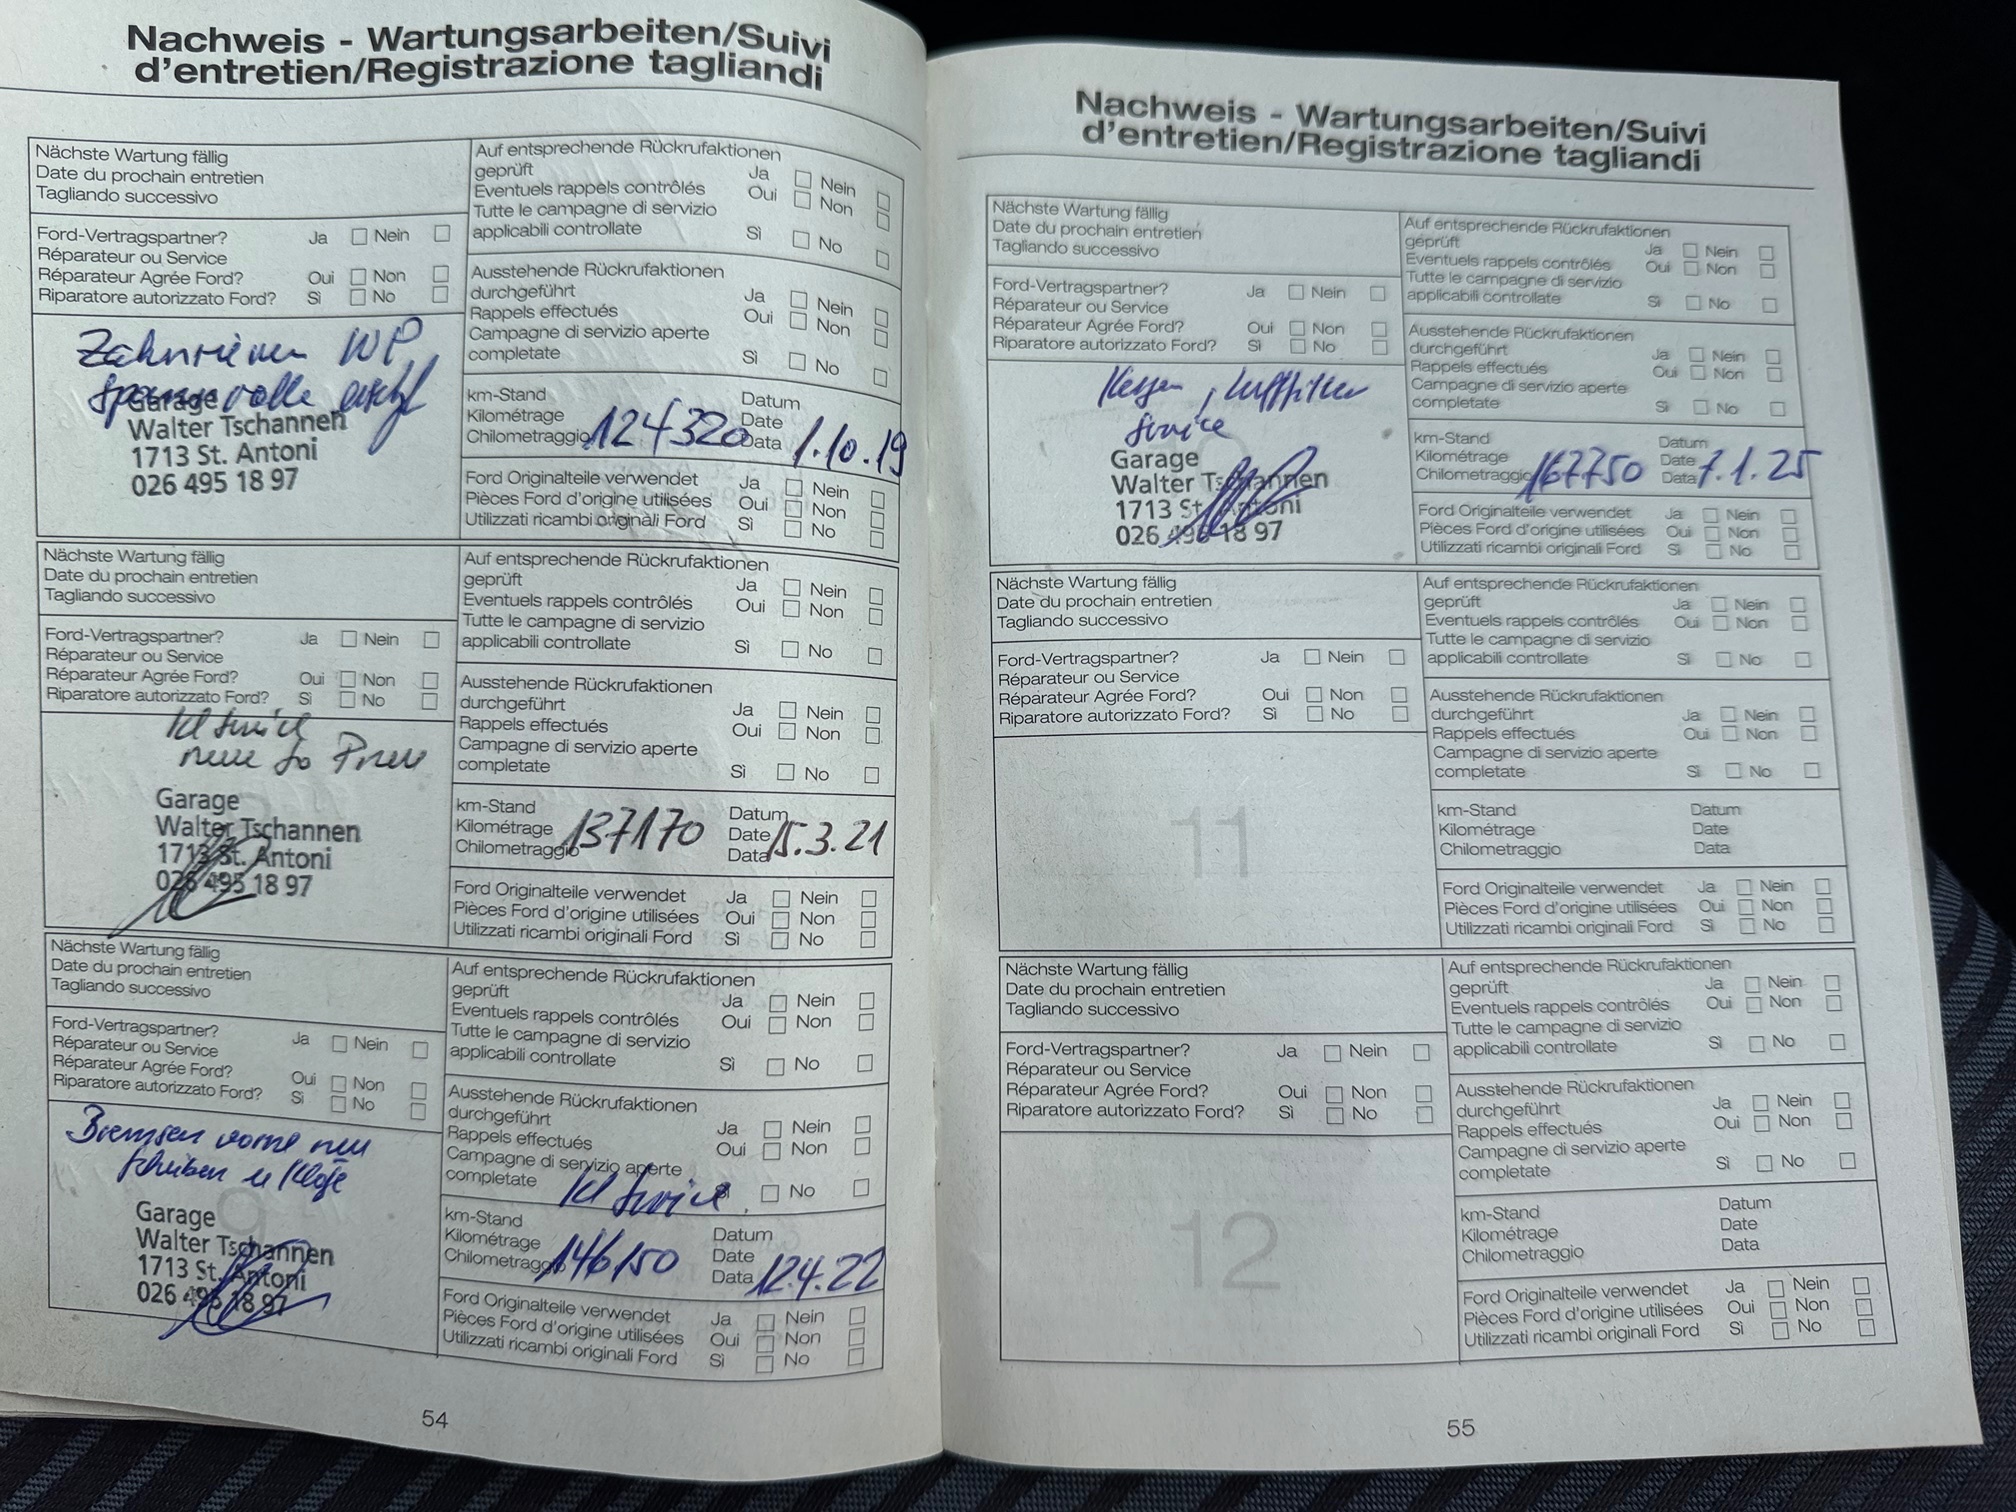 Nachweis - Wartungsarbeiten/Suivi
d'entretien/Registrazione tagliandi
Nächste Wartung fällig
Date du prochain entretien
Tagliando successivo
Ford-Vertragspartner? Ja Nein
Réparateur ou Service
Réparateur Agrée Ford? Oui Non
Riparatore autorizzato Ford? Sì No
Zahnriemen WP
Spannrolle
Garage
Walter Tschannen
1713 St. Antoni
026 495 18 97
Auf entsprechende Rückrufaktionen
geprüft Ja Nein
Eventuels rappels contrôlés Oui Non
Tutte le campagne di servizio
applicabili controllate Sì No
Ausstehende Rückrufaktionen
durchgeführt Ja Nein
Rappels effectués Oui Non
Campagne di servizio aperte
completate Sì No
km-Stand Datum
Kilométrage Date
Chilometraggio 124320 Data 1.10.19
Ford Originalteile verwendet Ja Nein
Pièces Ford d'origine utilisées Oui Non
Utilizzati ricambi originali Ford Sì No
Nächste Wartung fällig
Date du prochain entretien
Tagliando successivo
Ford-Vertragspartner? Ja Nein
Réparateur ou Service
Réparateur Agrée Ford? Oui Non
Riparatore autorizzato Ford? Sì No
Kl Service
neue
Garage
Walter Tschannen
1713 St. Antoni
026 495 18 97
Auf entsprechende Rückrufaktionen
geprüft Ja Nein
Eventuels rappels contrôlés Oui Non
Tutte le campagne di servizio
applicabili controllate Sì No
Ausstehende Rückrufaktionen
durchgeführt Ja Nein
Rappels effectués Oui Non
Campagne di servizio aperte
completate Sì No
km-Stand Datum
Kilométrage Date
Chilometraggio 137170 Data 15.3.21
Ford Originalteile verwendet Ja Nein
Pièces Ford d'origine utilisées Oui Non
Utilizzati ricambi originali Ford Sì No
Nächste Wartung fällig
Date du prochain entretien
Tagliando successivo
Ford-Vertragspartner? Ja Nein
Réparateur ou Service
Réparateur Agrée Ford? Oui Non
Riparatore autorizzato Ford? Sì No
Bremsen vorne neu
Scheiben u Klötze
9
Garage
Walter Tschannen
1713 St. Antoni
026 495 18 97
Auf entsprechende Rückrufaktionen
geprüft Ja Nein
Eventuels rappels contrôlés Oui Non
Tutte le campagne di servizio
applicabili controllate Sì No
Ausstehende Rückrufaktionen
durchgeführt Ja Nein
Rappels effectués Oui Non
Campagne di servizio aperte
completate Kl Service Sì No
km-Stand Datum
Kilométrage Date
Chilometraggio 146150 Data 12.4.22
Ford Originalteile verwendet Ja Nein
Pièces Ford d'origine utilisées Oui Non
Utilizzati ricambi originali Ford Sì No
54
Nachweis - Wartungsarbeiten/Suivi
d'entretien/Registrazione tagliandi
Nächste Wartung fällig
Date du prochain entretien
Tagliando successivo
Ford-Vertragspartner? Ja Nein
Réparateur ou Service
Réparateur Agrée Ford? Oui Non
Riparatore autorizzato Ford? Sì No
Luftfilter
Service
Garage
Walter Tschannen
1713 St. Antoni
026 495 18 97
Auf entsprechende Rückrufaktionen
geprüft Ja Nein
Eventuels rappels contrôlés Oui Non
Tutte le campagne di servizio
applicabili controllate Sì No
Ausstehende Rückrufaktionen
durchgeführt Ja Nein
Rappels effectués Oui Non
Campagne di servizio aperte
completate Sì No
km-Stand Datum
Kilométrage Date
Chilometraggio 167750 Data 7.1.25
Ford Originalteile verwendet Ja Nein
Pièces Ford d'origine utilisées Oui Non
Utilizzati ricambi originali Ford Sì No
Nächste Wartung fällig
Date du prochain entretien
Tagliando successivo
Ford-Vertragspartner? Ja Nein
Réparateur ou Service
Réparateur Agrée Ford? Oui Non
Riparatore autorizzato Ford? Sì No
11
Auf entsprechende Rückrufaktionen
geprüft Ja Nein
Eventuels rappels contrôlés Oui Non
Tutte le campagne di servizio
applicabili controllate Sì No
Ausstehende Rückrufaktionen
durchgeführt Ja Nein
Rappels effectués Oui Non
Campagne di servizio aperte
completate Sì No
km-Stand Datum
Kilométrage Date
Chilometraggio Data
Ford Originalteile verwendet Ja Nein
Pièces Ford d'origine utilisées Oui Non
Utilizzati ricambi originali Ford Sì No
Nächste Wartung fällig
Date du prochain entretien
Tagliando successivo
Ford-Vertragspartner? Ja Nein
Réparateur ou Service
Réparateur Agrée Ford? Oui Non
Riparatore autorizzato Ford? Sì No
12
Auf entsprechende Rückrufaktionen
geprüft Ja Nein
Eventuels rappels contrôlés Oui Non
Tutte le campagne di servizio
applicabili controllate Sì No
Ausstehende Rückrufaktionen
durchgeführt Ja Nein
Rappels effectués Oui Non
Campagne di servizio aperte
completate Sì No
km-Stand Datum
Kilométrage Date
Chilometraggio Data
Ford Originalteile verwendet Ja Nein
Pièces Ford d'origine utilisées Oui Non
Utilizzati ricambi originali Ford Sì No
55